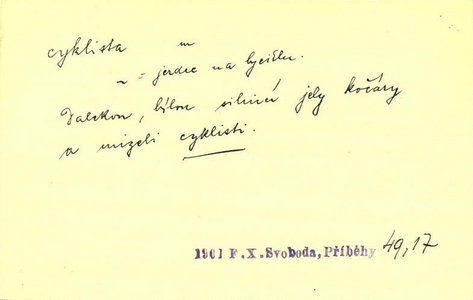 cyklista m
~ = jezdec na byciklu.
Dalekou, bílou silnicí jely kočáry
a mizeli cyklisti.
1901 F.X.Svoboda, Příběhy 49,17